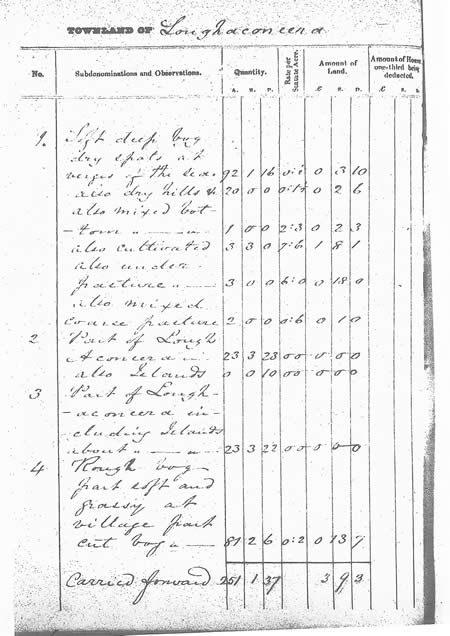 TOWNLAND OF Loughaconeera
No. Subdenominations and Observations. Quantity. Rate per Statute Acre. Amount of Land. Amount of House one-third being deducted.
A. R. P. £ S. D. £ S. D.
1. Soft deep bog
dry spots at
verges of the sea 92 1 16 0 3 10
also dry hills & 20 0 0 0 2 6
also mixed bot-
-tom 1 0 0 2:3 0 2 3
also cultivated 3 3 0 7:6 1 8 1
also under
pasture 3 0 0 6:0 0 18 0
also mixed
coarse pasture 2 0 0 0:6 0 1 0
2 Part of Lough
Aconeera 23 3 23 0 0 0 0 0
also Islands 0 0 10 0 0 0 0 0
3 Part of Lough-
-aconeera in-
cluding Islands
about 23 3 22 0 0 0 0 0
4 Rough bog
part soft and
grassy at
village part
cut bog 81 2 6 0:2 0 13 7
Carried forward 251 1 37 3 9 3